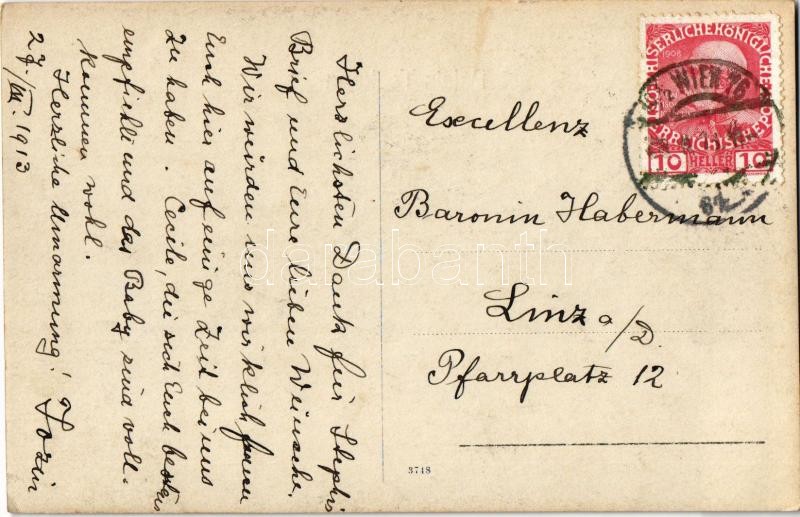 Herzlichsten Dank für Stephis
Brief und Eure lieben Wünsche.
Wir würden uns wirklich freuen
Euch hier auf einige Zeit bei uns
zu haben. Cecile, die sich Euch bestens
empfiehlt und das Baby sind voll-
kommen wohl.
Herzliche Umarmung!
27/III. 1913
Excellenz
Baronin Habermann
Linz a/D.
Pfarrplatz 12
3748
1908
WIEN 76
10 HELLER 10
darabanth